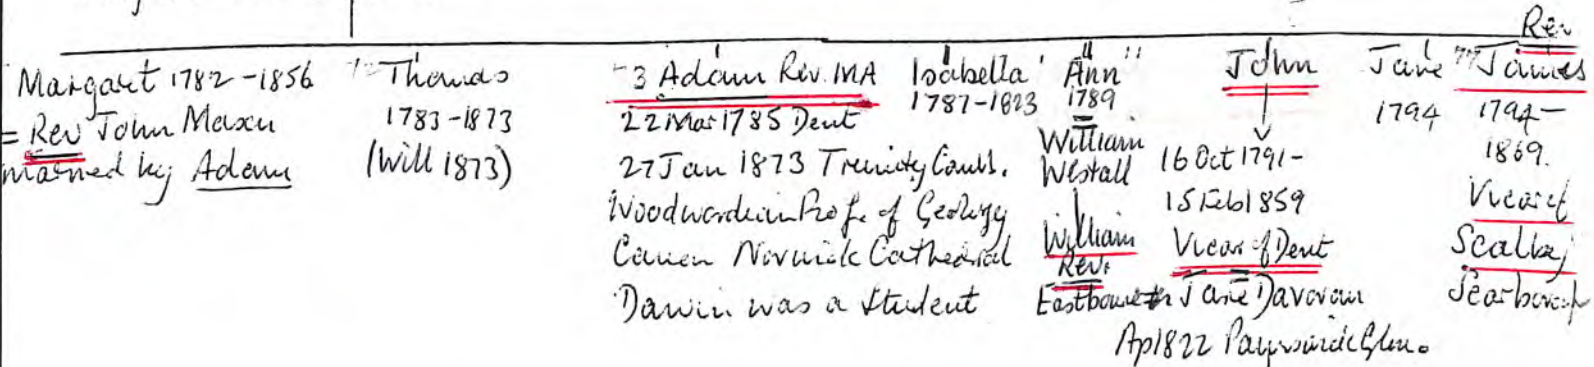 Margaret 1782-1856
= Rev John Maxn
married by Adam
Thomas
1783-1873
(Will 1873)
3 Adam Rev. MA
22 Mar 1785 Dent
27 Jan 1873 Trinity Camb.
Woodwardian Prof. of Geology
Canon Norwich Cathedral
Darwin was a student
Isabella
1787-1823
Ann
1789
=
William
Westall
William
Rev.
Eastbourne
John
16 Oct 1791-
15 Feb 1859
Vicar of Dent
= Jane Davoran
Ap 1822 Glou.
Jane
1794
Rev
James
1794-
1869.
Vicar of
Scalby
Scarborough